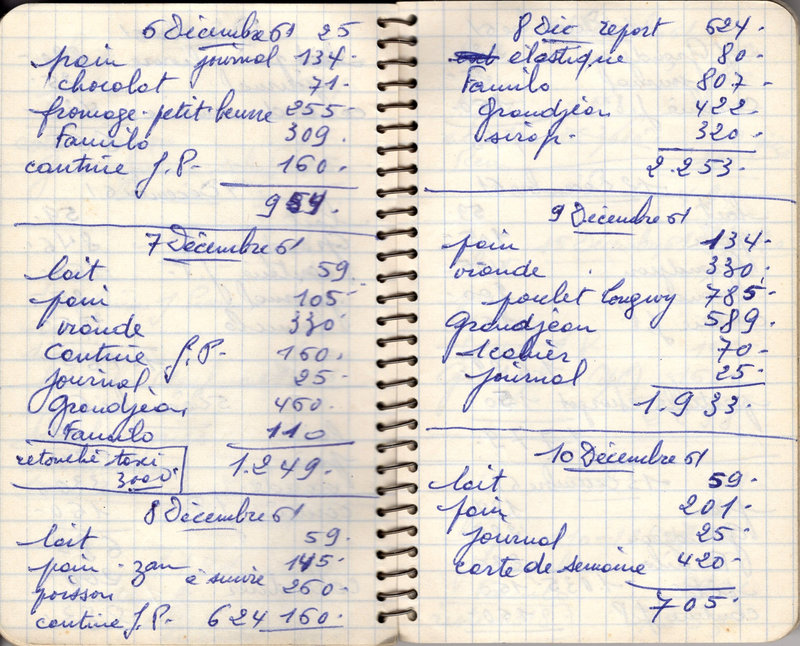 6 Décembre 61 25
pain journal 134-
chocolat 71-
fromage - petit beurre 255-
Familo 309.
cantine J.P- 160-
954.
7 Décembre 61
lait 59.
pain 105-
viande 330-
Cantine J.P- 160.
journal 25-
Grandjean 460.
Familo 110
retouche taxi
3.000
1.249.
8 Décembre 61
lait 59.
pain - zan 145-
à suivre
poisson 260-
cantine J.P- 624 160-
8 Déc report 624-
élastique 80-
Familo 807-
Grandjean 422-
sirop- 320-
2.253-
9 Décembre 61
pain 134-
viande 330.
poulet Longwy 785-
Grandjean 589.
70-
journal 25-
1.933-
10 Décembre 61
lait 59-
pain 201-
journal 25-
carte de semaine 420-
705-